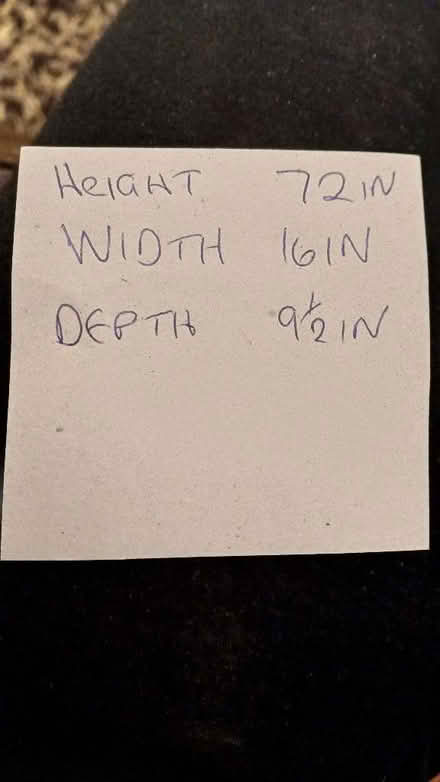 HeIGHT 72 IN
WIDTH 16 IN
DEPTH 9 1/2 IN